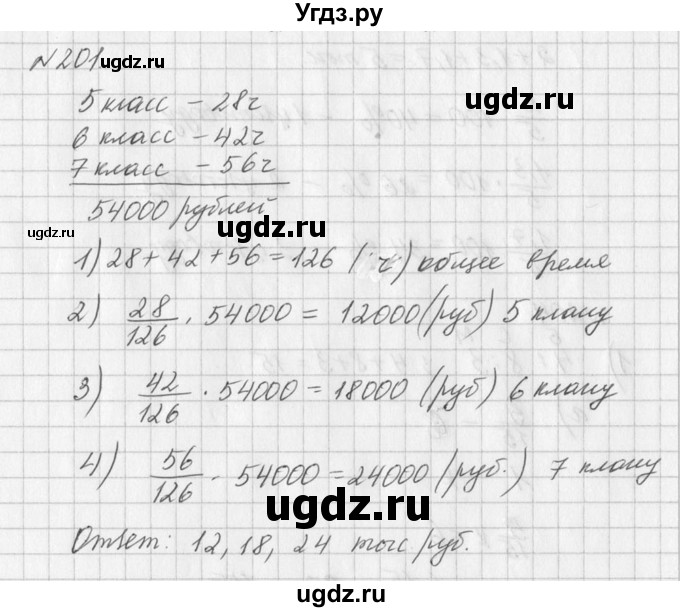 Угдз.ру
№201 ugdz.ru
5 класс – 28ч
ugdz.ru
6 класс – 42ч
7 класс – 56ч
ugdz.ru
54000 рублей
ugdz.ru
1) 28 + 42 + 56 = 126 (ч) общее время
2) 28/126 · 54000 = 12000 (руб) 5 классу
ugdz.ru
3) 42/126 · 54000 = 18000 (руб) 6 классу
ugdz.ru
4) 56/126 · 54000 = 24000 (руб.) 7 классу
ugdz.ru
Ответ: 12, 18, 24 тыс руб.
ugdz.ru